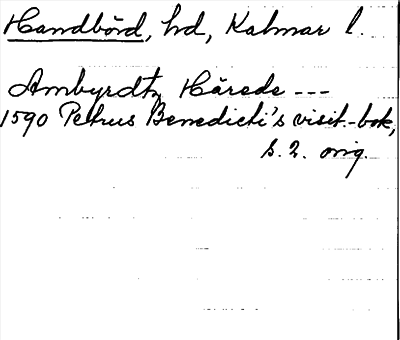 Handbörd, hd, Kalmar l.
Ambyrdtz Härede ---
1590 Petrus Benedicti's visit.-bok,
s. 2. orig.